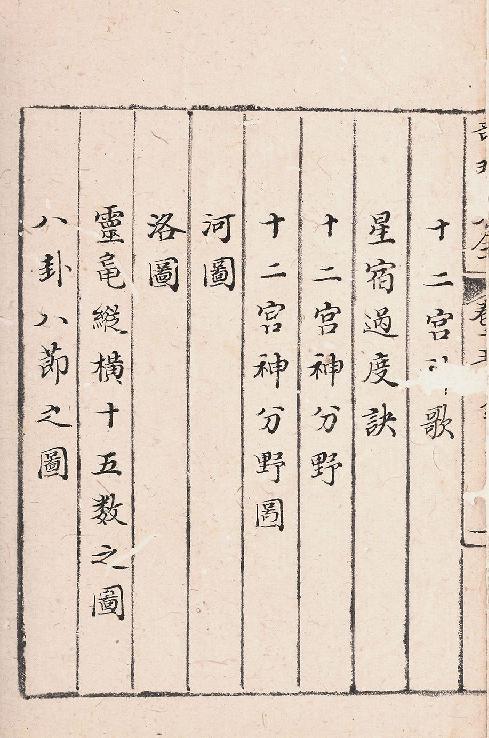 十二宮歌
星宿過度訣
十二宮神分野
十二宮神分野圖
河圖
洛圖
靈龜縱橫十五数之圖
八卦八節之圖